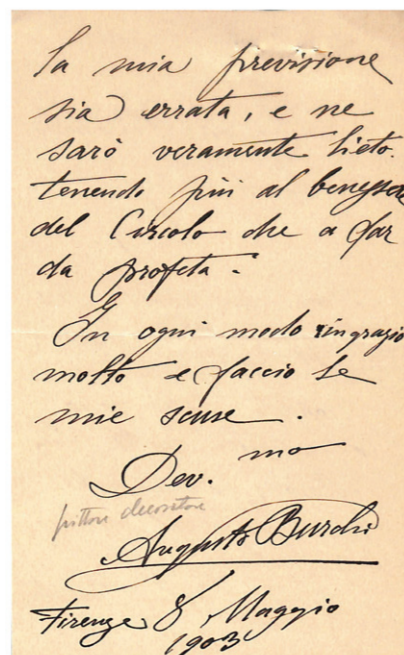 la mia previsione
sia errata, e ne
sarò veramente lieto.
tenendo più al benessere
del Circolo che a far
da profeta.
In ogni modo ringrazio
molto e faccio le
mie scuse.
Dev.mo
pittore decoratore
Augusto Burchi
Firenze 8 Maggio
1903